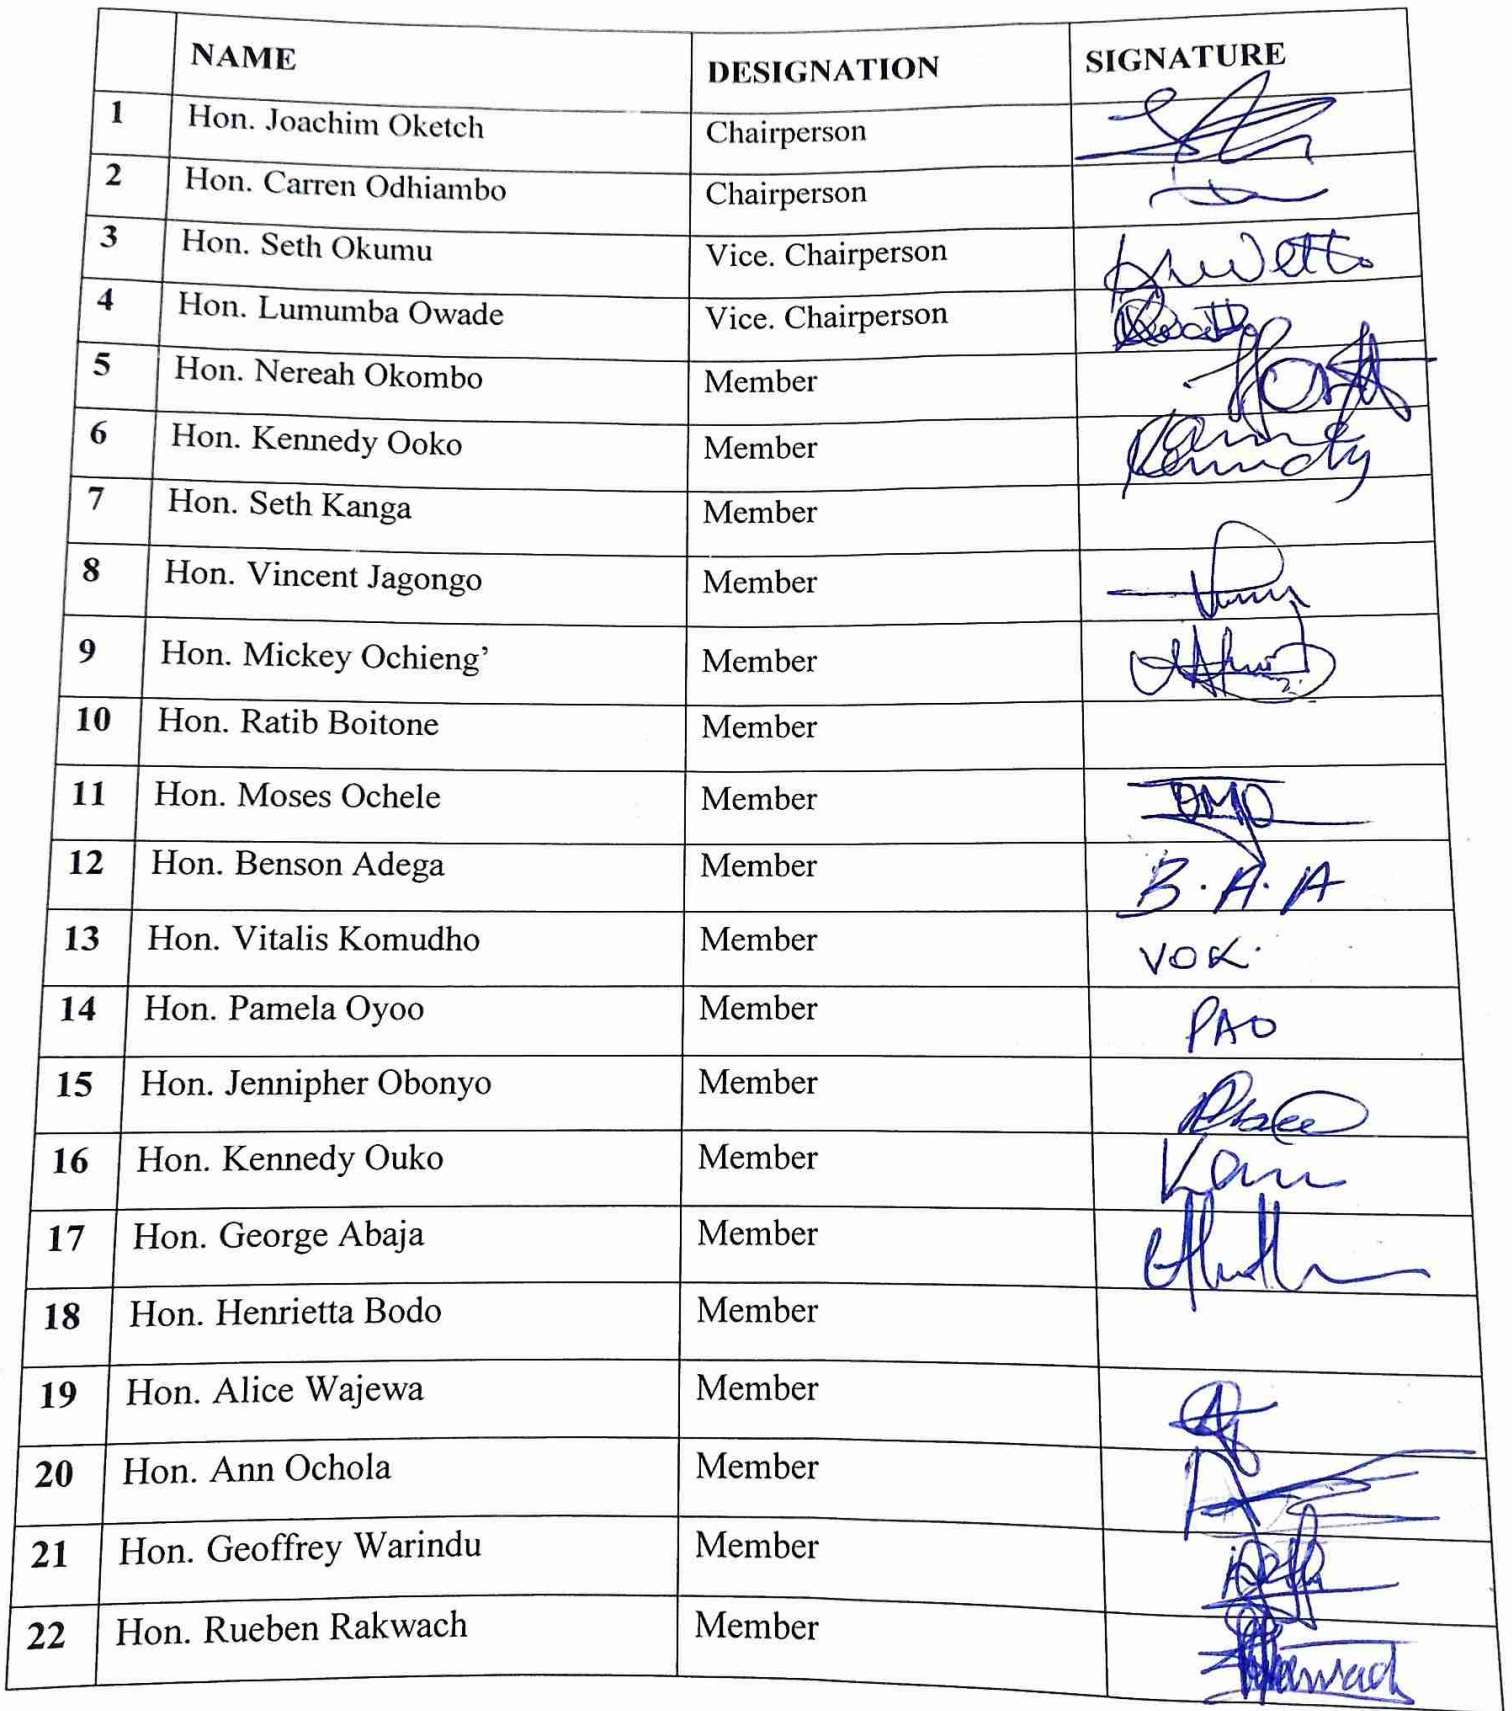 NAME DESIGNATION SIGNATURE
1 Hon. Joachim Oketch Chairperson
2 Hon. Carren Odhiambo Chairperson
3 Hon. Seth Okumu Vice. Chairperson
4 Hon. Lumumba Owade Vice. Chairperson
5 Hon. Nereah Okombo Member
6 Hon. Kennedy Ooko Member Kennedy
7 Hon. Seth Kanga Member
8 Hon. Vincent Jagongo Member
9 Hon. Mickey Ochieng’ Member
10 Hon. Ratib Boitone Member
11 Hon. Moses Ochele Member
12 Hon. Benson Adega Member B.A.A
13 Hon. Vitalis Komudho Member VOK.
14 Hon. Pamela Oyoo Member PAO
15 Hon. Jennipher Obonyo Member
16 Hon. Kennedy Ouko Member
17 Hon. George Abaja Member
18 Hon. Henrietta Bodo Member
19 Hon. Alice Wajewa Member
20 Hon. Ann Ochola Member
21 Hon. Geoffrey Warindu Member
22 Hon. Rueben Rakwach Member